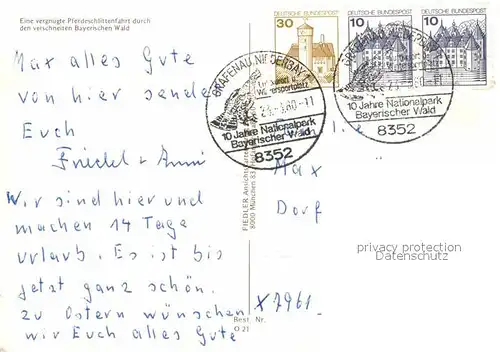 Eine vergnügte Pferdeschlittenfahrt durch
den verschneiten Bayerischen Wald
Max alles Gute
von hier sendet
Euch
Friedel + Anni
Wir sind hier und
machen 14 Tage
Urlaub. Es ist bis
jetzt ganz schön.
zu Ostern wünschen
wir Euch alles Gute
DEUTSCHE BUNDESPOST
30
DEUTSCHE BUNDESPOST
10
DEUTSCHE BUNDESPOST
10
GRAFENAU, NIEDERBAY
Wintersportplatz
-11
10 Jahre Nationalpark
Bayerischer Wald
8352
GRAFENAU, NIEDERBAY
10 Jahre Nationalpark
Bayerischer Wald
8352
FIEDLER Ansichtskarten
8000 München 83
Max
Dorf
privacy protection
www.oldthing.de
X7961
Best. Nr.
O 21